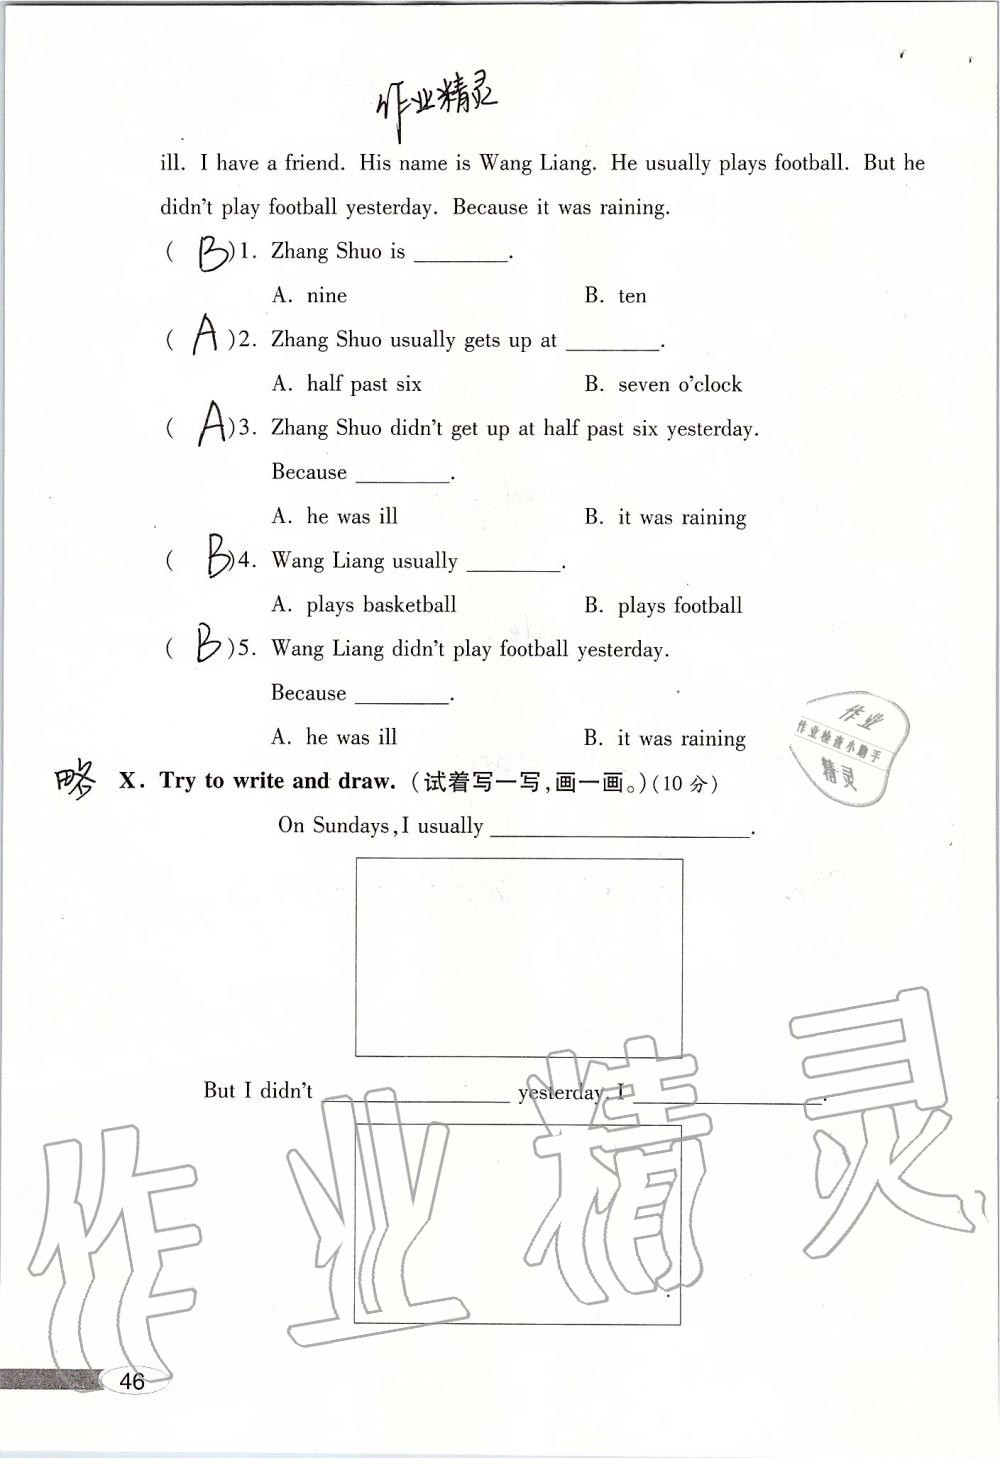 作业精灵
ill. I have a friend. His name is Wang Liang. He usually plays football. But he
didn't play football yesterday. Because it was raining.
( B )1. Zhang Shuo is ________.
A. nine B. ten
( A )2. Zhang Shuo usually gets up at ________.
A. half past six B. seven o'clock
( A )3. Zhang Shuo didn't get up at half past six yesterday.
Because ________.
A. he was ill B. it was raining
( B )4. Wang Liang usually ________.
A. plays basketball B. plays football
( B )5. Wang Liang didn't play football yesterday.
Because ________.
A. he was ill B. it was raining
作业
作业检查小助手
精灵
略 X. Try to write and draw. (试着写一写,画一画。)(10 分)
On Sundays, I usually ________________________.
But I didn't ________________ yesterday. I ________________.
作业精灵
46